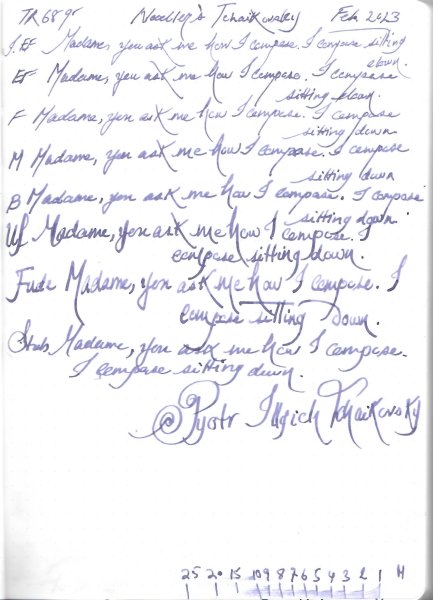 TR 68 gr Noodler's Tchaikovsky Feb 2023
J. EF Madame, you ask me how I compose. I compose sitting
down.
EF Madame, you ask me how I compose. I compose
sitting down.
F Madame, you ask me how I compose. I compose
sitting down
M Madame, you ask me how I compose. I compose
sitting down
B Madame, you ask me how I compose. I compose
sitting down
Madame, you ask me how I compose. I
compose sitting down.
Fude Madame, you ask me how I compose. I
compose sitting down.
Stub Madame, you ask me how I compose.
I compose sitting down.
@Pyotr Ilyich Tchaikovsky
25 20 15 10 9 8 7 6 5 4 3 2 1 H